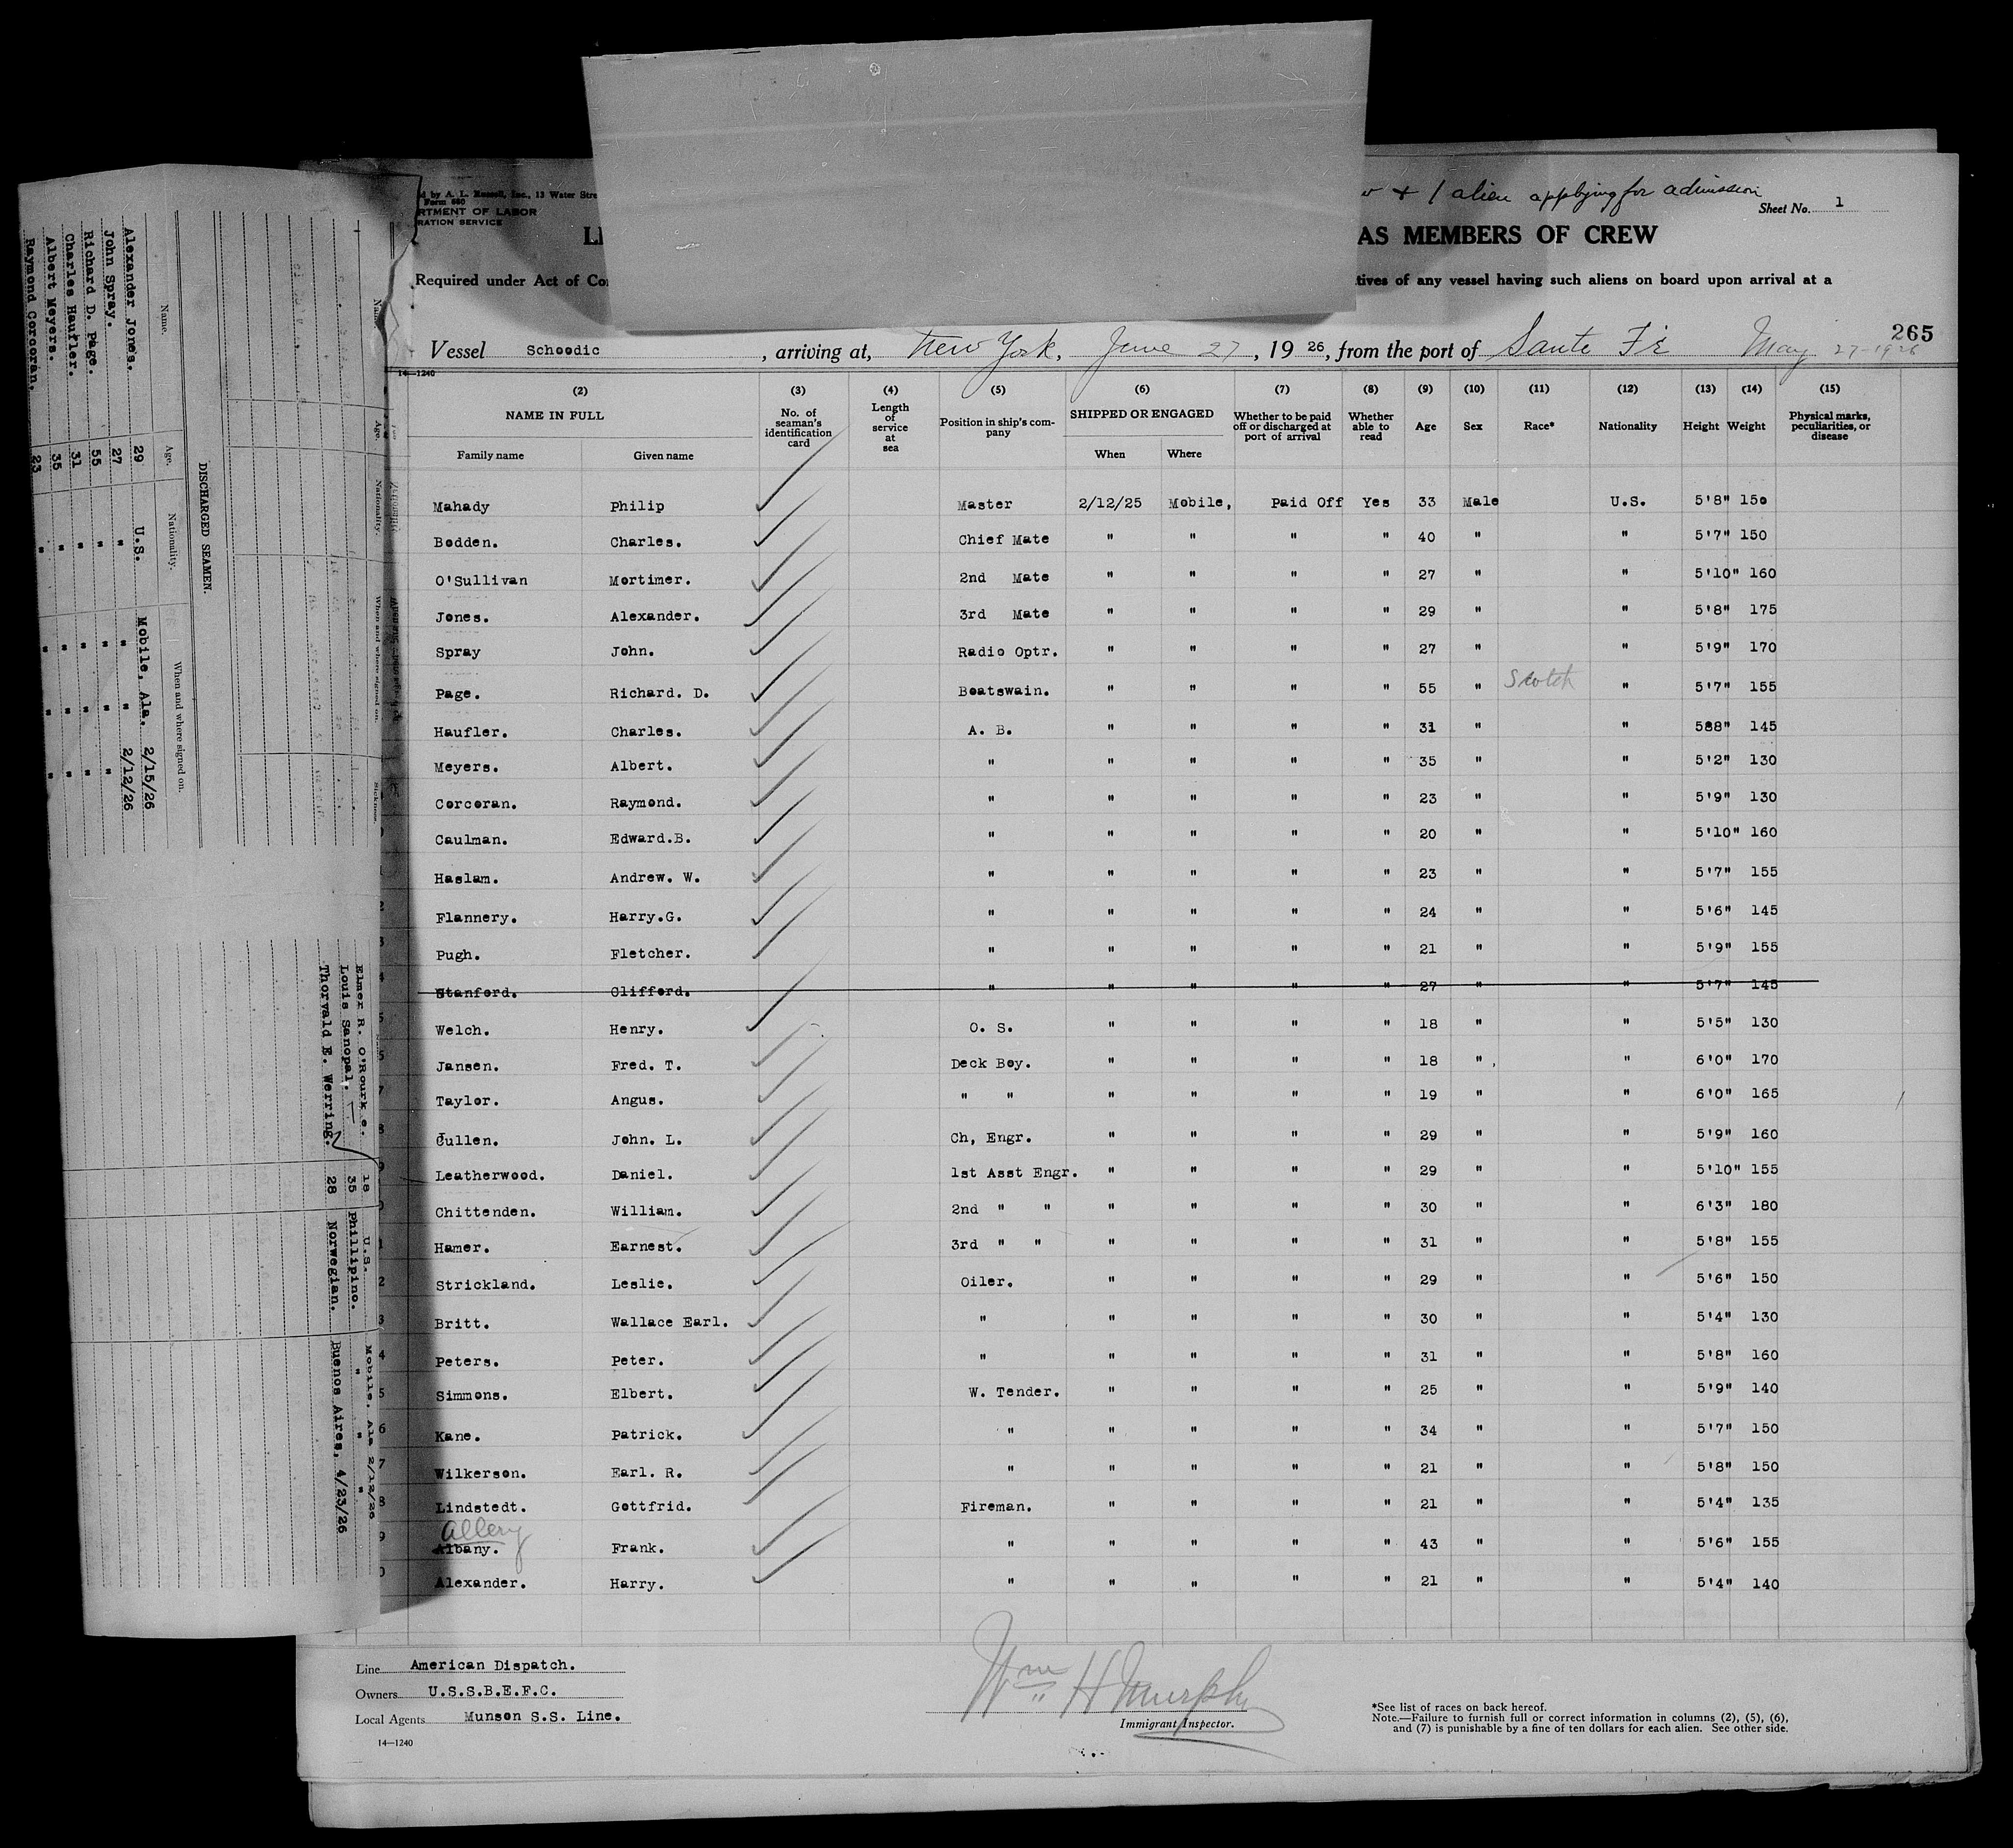 d by A. L. Russell, Inc., 13 Water Stre
Form 680
RTMENT OF LABOR
RATION SERVICE
+ 1 alien applying for admission
Sheet No. 1
AS MEMBERS OF CREW
Required under Act of Co
tives of any vessel having such aliens on board upon arrival at a
265
Vessel Schoodic , arriving at, New York, June 27 , 19 26, from the port of Sante Fé May 27-1926
14—1240
(2) (3) (4) (5) (6) (7) (8) (9) (10) (11) (12) (13) (14) (15)
NAME IN FULL No. of seaman's identification card Length of service at sea Position in ship's company SHIPPED OR ENGAGED Whether to be paid off or discharged at port of arrival Whether able to read Age Sex Race* Nationality Height Weight Physical marks, peculiarities, or disease
Family name Given name When Where
Mahady Philip Master 2/12/25 Mobile, Paid Off Yes 33 Male U.S. 5'8" 150
Bodden. Charles. Chief Mate " " " " 40 " " 5'7" 150
O'Sullivan Mortimer. 2nd Mate " " " " 27 " " 5'10" 160
Jones. Alexander. 3rd Mate " " " " 29 " " 5'8" 175
Spray John. Radio Optr. " " " " 27 " " 5'9" 170
Page. Richard. D. Boatswain. " " " " 55 " Scotch " 5'7" 155
Haufler. Charles. A. B. " " " " 31 " " 588" 145
Meyers. Albert. " " " " " 35 " " 5'2" 130
Corcoran. Raymond. " " " " " 23 " " 5'9" 130
Caulman. Edward.B. " " " " " 20 " " 5'10" 160
Haslam. Andrew. W. " " " " " 23 " " 5'7" 155
Flannery. Harry.G. " " " " " 24 " " 5'6" 145
Pugh. Fletcher. " " " " " 21 " " 5'9" 155
Stanford. Clifford. " " " " " 27 " " 5'7" 145
Welch. Henry. O. S. " " " " 18 " " 5'5" 130
Jansen. Fred. T. Deck Boy. " " " " 18 " " 6'0" 170
Taylor. Angus. " " " " " " 19 " " 6'0" 165
Cullen. John. L. Ch, Engr. " " " " 29 " " 5'9" 160
Leatherwood. Daniel. 1st Asst Engr. " " " " 29 " " 5'10" 155
Chittenden. William. 2nd " " " " " " 30 " " 6'3" 180
Hamer. Earnest. 3rd " " " " " " 31 " " 5'8" 155
Strickland. Leslie. Oiler. " " " " 29 " " 5'6" 150
Britt. Wallace Earl. " " " " " 30 " " 5'4" 130
Peters. Peter. " " " " " 31 " " 5'8" 160
Simmons. Elbert. W. Tender. " " " " 25 " " 5'9" 140
Kane. Patrick. " " " " " 34 " " 5'7" 150
Wilkerson. Earl. R. " " " " " 21 " " 5'8" 150
Lindstedt. Gottfrid. Fireman. " " " " 21 " " 5'4" 135
Allery
Albany. Frank. " " " " " 43 " " 5'6" 155
Alexander. Harry. " " " " " 21 " " 5'4" 140
Line American Dispatch.
Owners U.S.S.B.E.F.C.
Local Agents Munson S.S. Line.
14—1240
Wm H Murphy
Immigrant Inspector.
*See list of races on back hereof.
Note.—Failure to furnish full or correct information in columns (2), (5), (6),
and (7) is punishable by a fine of ten dollars for each alien. See other side.
DISCHARGED SEAMEN.
Name. Age. Nationality. When and where signed on.
Alexander Jones. 29 U.S. Mobile, Ala. 2/15/26
John Spray. 27 " " " 2/12/26
Richard D. Page. 55 " " " "
Charles Haufler. 31 " " " "
Albert Meyers. 35 " " " "
Raymond Corcoran. 23 " " " "
Elmer R. O'Rourke. 18 U.S. Mobile, Ala 2/12/26
Louis Sanopal. 35 Phillipino. " " "
Thorvald E. Werring. 28 Norwegian. Buenos Aires, 4/23/26